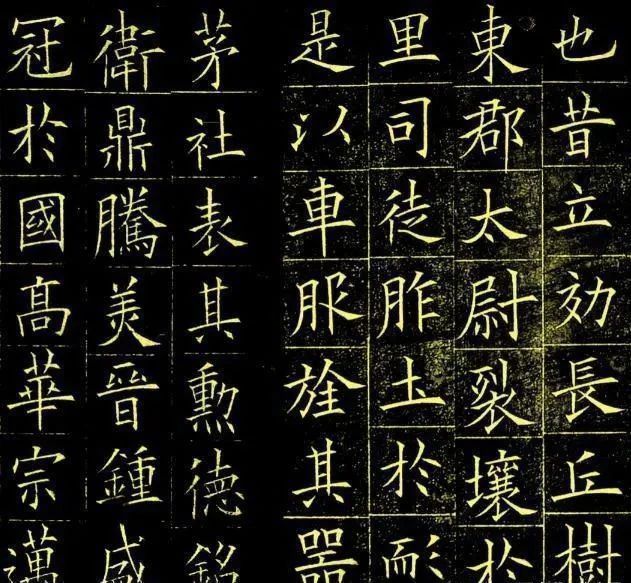 也昔立効長丘樹
東郡太尉裂壤於
里司徒胙土於耏
是以車服旌其器
茅社表其勳德銘
衛鼎騰美晉鍾盛
冠於國高華宗邁